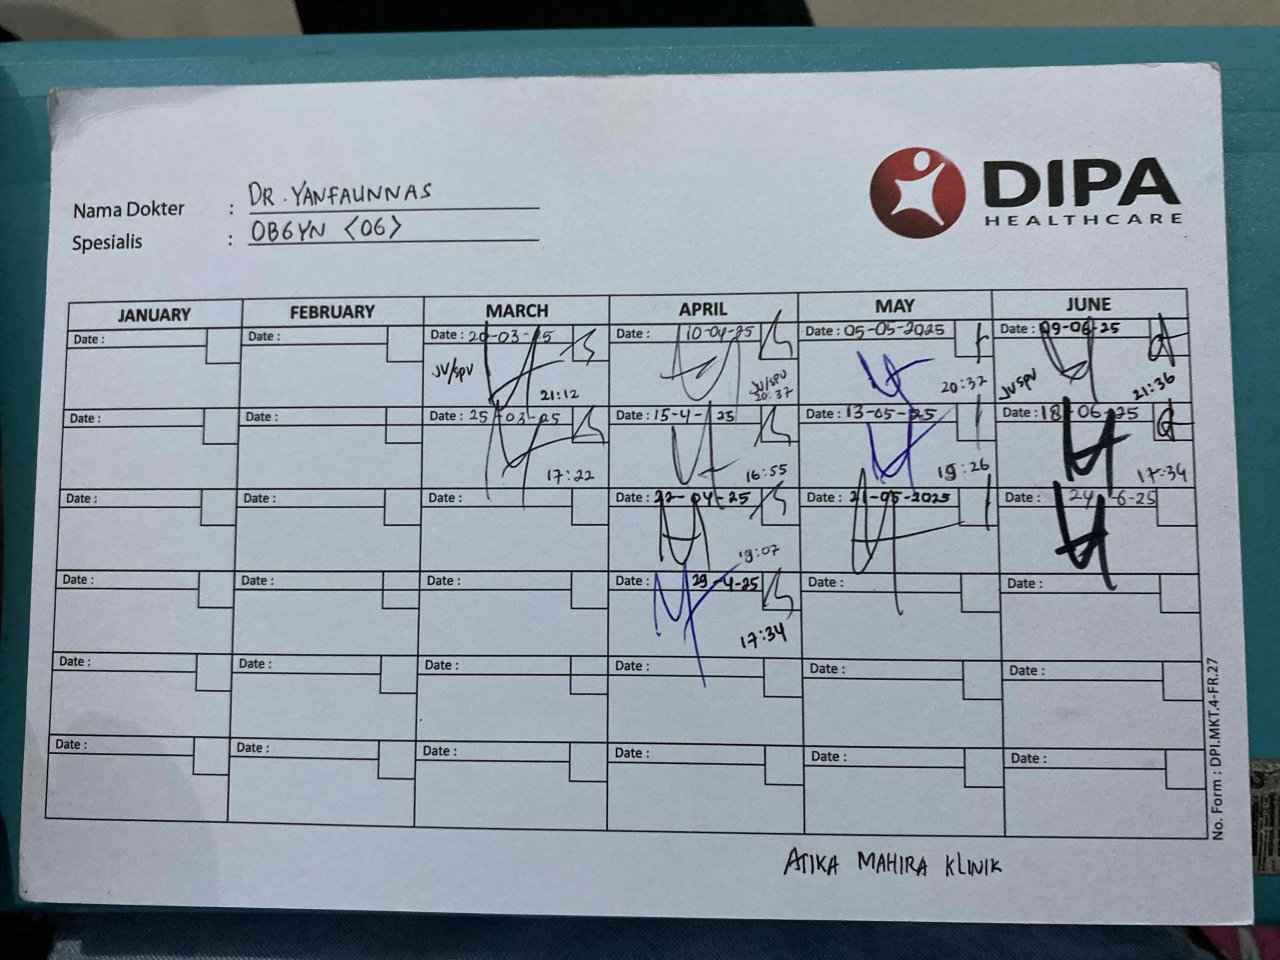 DIPA
HEALTHCARE
Nama Dokter : DR. YANFAUNNAS
Spesialis : OBGYN <OG>
JANUARY FEBRUARY MARCH APRIL MAY JUNE
Date : Date : Date : 20-03-25 Date : 10-04-25 Date : 05-05-2025 Date : 09-06-25
JV/SPV 21:12 JV/SPV 20:37 20:32 JV SPV 21:36
Date : Date : Date : 25-03-25 Date : 15-4-25 Date : 13-05-25 Date : 18-06-25
17:22 16:55 19:26 17:34
Date : Date : Date : Date : 22-04-25 Date : 21-05-2025 Date : 24-6-25
19:07
Date : Date : Date : Date : 29-4-25 Date : Date :
17:34
Date : Date : Date : Date : Date : Date :
Date : Date : Date : Date : Date : Date :
No. Form : DPI.MKT.4-FR.27
ATIKA MAHIRA KLINIK